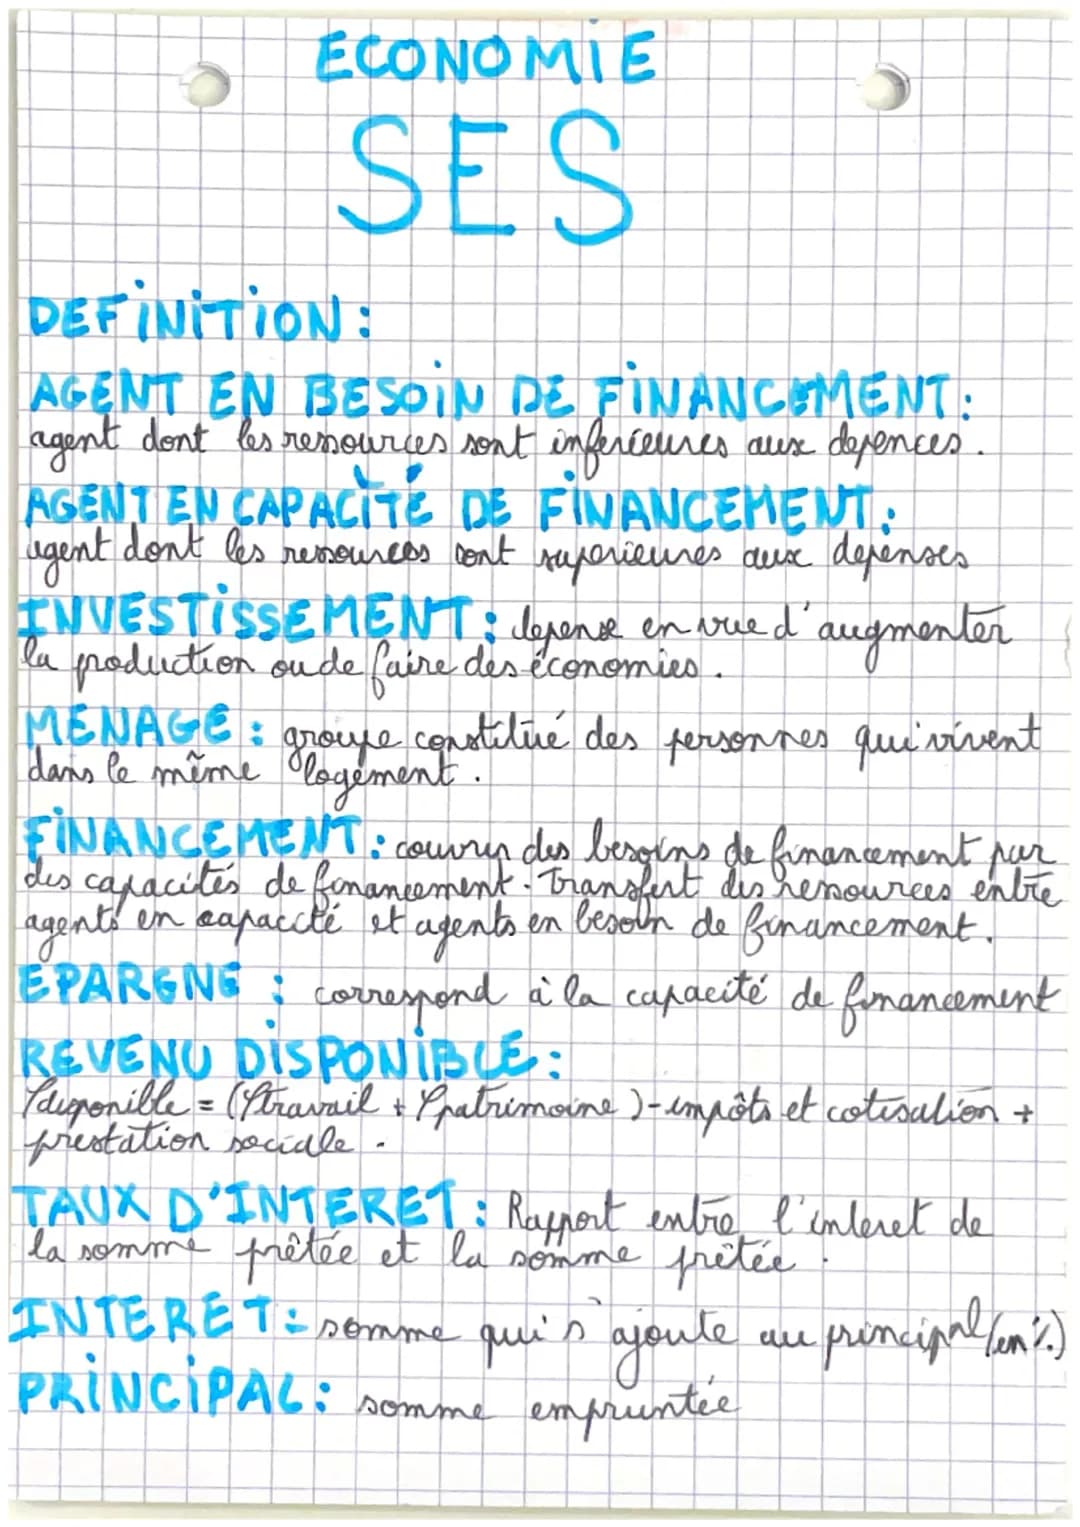 ECONOMIE
SES
DEFINITION :
AGENT EN BESOIN DE FINANCEMENT :
agent dont les ressources sont inferieures aux depences .
AGENT EN CAPACITÉ DE FINANCEMENT :
agent dont les ressources sont superieures aux depenses
INVESTISSEMENT : depense en vue d'augmenter
la production ou de faire des économies .
MENAGE : groupe constitué des personnes qui vivent
dans le même logement .
FINANCEMENT : couvrir des besoins de financement par
des capacités de financement . Transfert des ressources entre
agents en capacité et agents en besoin de financement .
EPARGNE : correspond à la capacité de financement
REVENU DISPONIBLE :
Ydisponible = (Ytravail + Ypatrimoine ) - impôts et cotisation +
prestation sociale .
TAUX D'INTERET : Rapport entre l'interet de
la somme prêtée et la somme prêtée .
INTERET : somme qui s'ajoute au principal (en %)
PRINCIPAL : somme empruntée